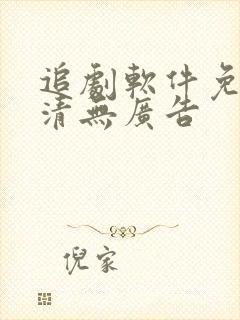 追劇軟件免
清無廣告
倪家